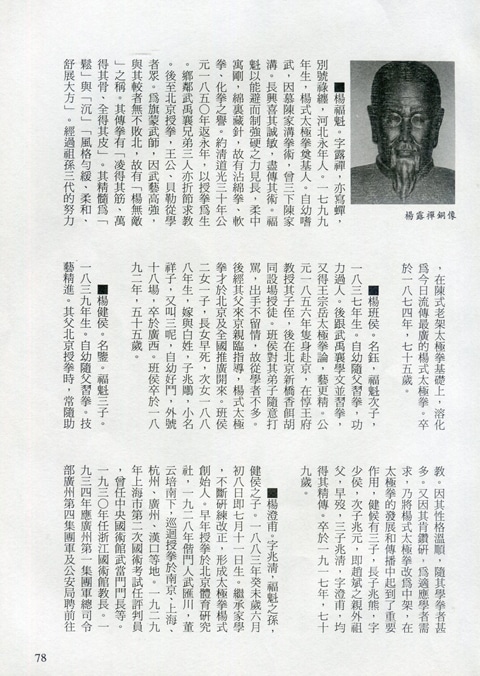 楊露禪銅像
■楊福魁。字露禪，亦寫蟬，
別號祿纏，河北永年人。一七九九
年生，楊式太極拳奠基人。自幼嗜
武，因慕陳家溝拳術，曾三下陳家
溝。長興喜其誠敏，盡傳其術。福
魁以能避而制強硬之力見長，柔中
寓剛，綿裏藏針，故有沾綿拳、軟
拳、化拳之譽。約清道光三十年公
元一八五○年返永年，以授拳爲生
。鄉鄰武禹襄兄弟三人亦折節求教
。後至北京授拳，王公、貝勒從學
者眾。爲旗蒙武師，因武藝高強，
與其較者無不敗北，故有「楊無敵
」之稱。其傳拳有「凌得其筋、萬
得其骨、全得其皮」。其精髓爲「
鬆」與「沉」「風格勻緩、柔和、
舒展大方」。經過祖孫三代的努力
，在陳式老架太極拳基礎上，溶化
爲今日流傳最廣的楊式太極拳。卒
於一八七四年，七十五歲。
■楊班侯。名鈺，福魁次子，
一八三七年生。自幼隨父習拳，功
力過人。後跟武禹襄學文並習拳，
又得王宗岳太極拳論，藝更精。公
元一八五六年隻身赴京，在惇王府
教授其子侄，後在北京新橋香餌胡
同設場授徒。班侯對其弟子隨意打
罵，出手不留情，故從學者不多。
後經其父來京親臨指導，楊式太極
拳才於北京及全國推廣開來。班侯
二女一子，長女早死，次女一八八
八年生，嫁與白姓。子兆鵬，小名
祥子，又叫三呢，自幼好鬥，外號
十八塲，卒於廣西。班侯卒於一八
九二年，五十五歲。
■楊健侯。名鑒。福魁三子。
一八三九年生。自幼隨父習拳。技
藝精進。其父北京授拳時，常隨助
教。因其性格溫順，隨其學拳者甚
多。又因其肯鑽研，爲適應學者需
求，乃將楊式太極拳改爲中架，在
太極拳的發展和傳播中起到了重要
作用，健候有三子，長子兆熊，字
少侯，次子兆元，即趙斌之親外祖
父，早歿，三子兆清，字澄甫，均
得其精傳。卒於一九一七年，七十
九歲。
■楊澄甫。字兆清，福魁之孫，
健侯之子。一八八三年癸未歲六月
初八日即七月十一日生。繼承家學
，不斷研練改正，形成太極拳楊式
創始人。早年授拳於北京體育研究
社，一九二八年偕門人武匯川，董
云培南下，巡迴授拳於南京、上海、
杭州、廣州、漢口等地。一九二九
年上海市第二次國術考試任評判員
，曾任中央國術館武當門門長等。
一九三○年任浙江國術館教長。一
九三四年應廣州第一集團軍總司令
部廣州第四集團軍及公安局聘前往
78